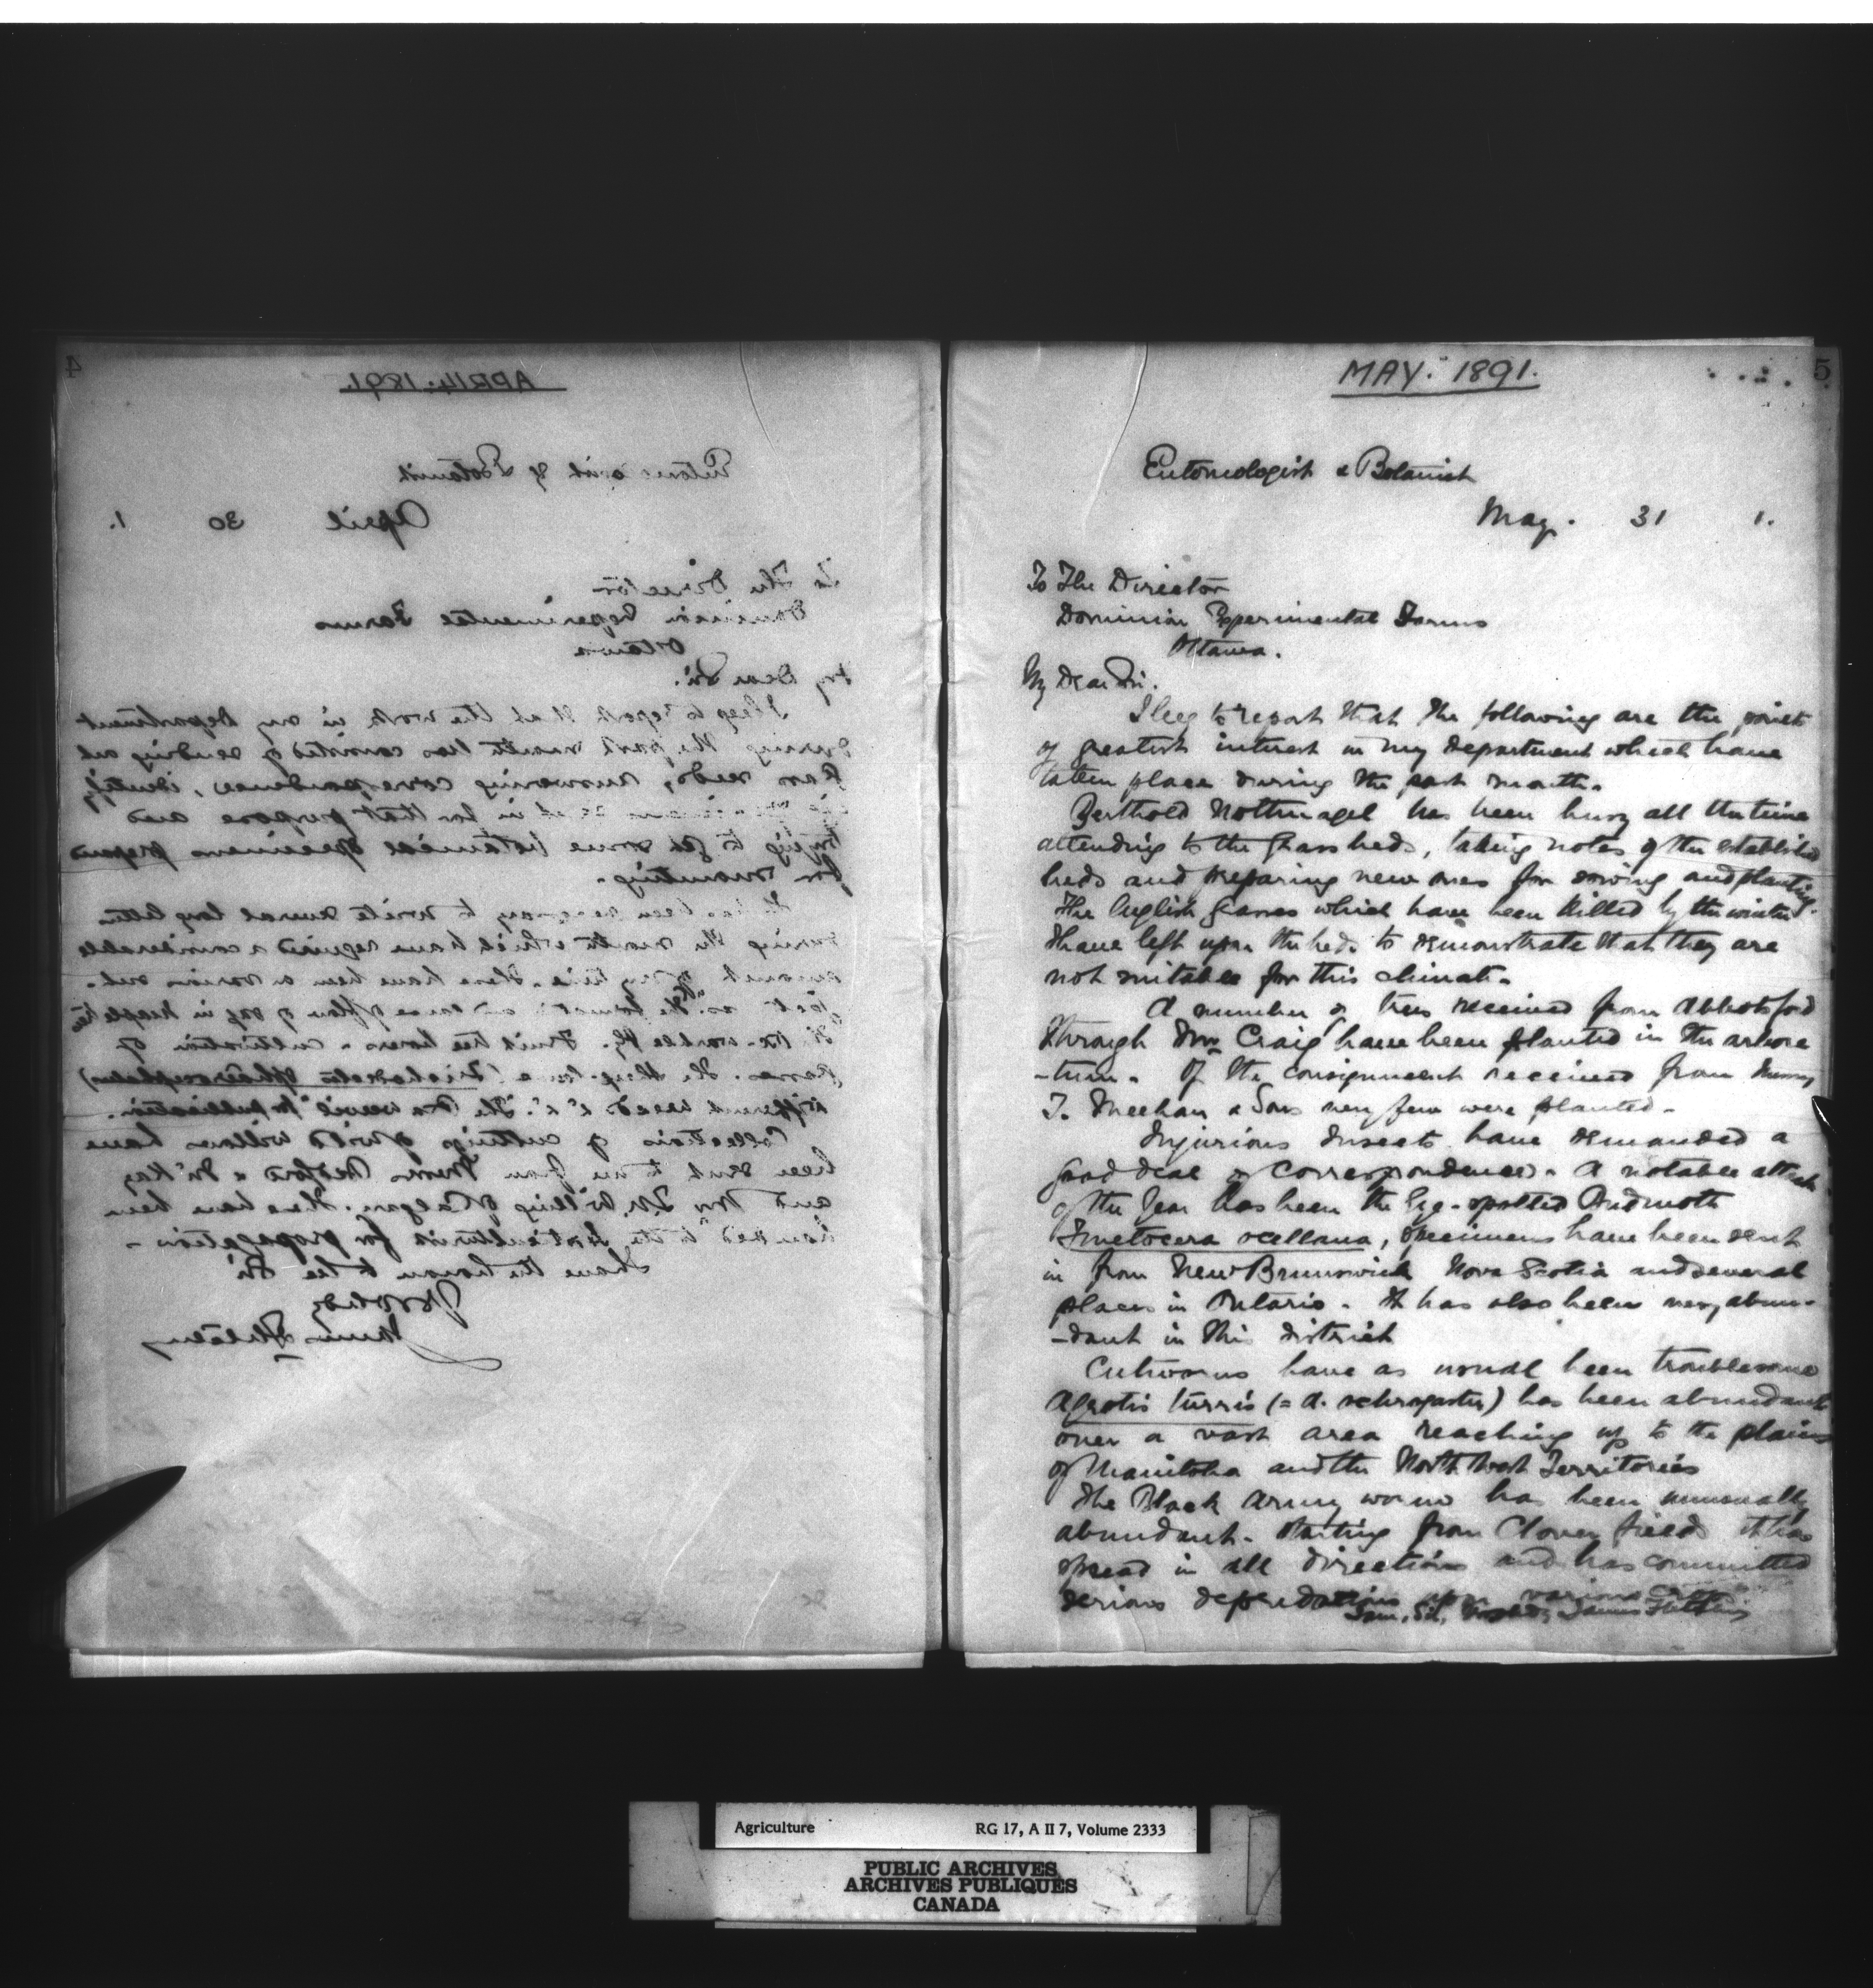 MAY. 1891.
5
Entomologist & Botanist
May. 31 1.
To The Director
Dominion Experimental Farms
Ottawa.
My Dear Sir.
I beg to report that the following are the points
of greatest interest in my department which have
taken place during the past month.
Berthold Nothnagel has been busy all the time
attending to the Grass beds, taking notes of the established
beds and preparing new ones for sowing and planting.
The English Grasses which have been killed by the winter
I have left upon the beds to demonstrate that they are
not suitable for this climate.
A number of trees received from Abbotsford
through Mr Craig have been planted in the arbore
-tum. Of the consignment received from Messrs
T. Meehan & Sons very few were planted.
Injurious Insects have demanded a
good deal of correspondence. A notable attack
of the Year has been the Eye-spotted Budmoth
Tmetocera ocellana, specimens have been sent
in from New Brunswick Nova Scotia and several
places in Ontario. It has also been very abun-
-dant in this district
Cutworms have as usual been troublesome
Agrotis turris (= A. ochrogaster) has been abundant
over a vast area reaching up to the plains
of Manitoba and the North West Territories
The Black Army worm has been unusually
abundant. Starting from Clover fields it has
spread in all directions and has committed
serious depredations upon various crops
I am, Sir, Yours James Fletcher
4
APRIL. 1891.
Entomologist & Botanist
April 30 1.
To The Director
Dominion Experimental Farms
Ottawa
My Dear Sir.
I beg to report that the work in my Department
during the past month has consisted of sending out
Grass seeds, answering correspondence, identify
sent in for that purpose and
trying to get some botanical specimens prepared
for mounting.
It has been necessary to write several long letters
during the month which have required a considerable
amount of my time. These have been on various sub-
Fruit tree borers - cultivation of
Grasses.
different weeds &c. The Pea weevil for publication.
Collections of cuttings of wild willows have
been sent to me from Messrs Bedford & McKay
and Mr T.N. Willing of Calgary. These have been
handed to the Horticulturist for propagation -
I have the honour to be Sir
James Fletcher
Agriculture RG 17, A II 7, Volume 2333
PUBLIC ARCHIVES
ARCHIVES PUBLIQUES
CANADA